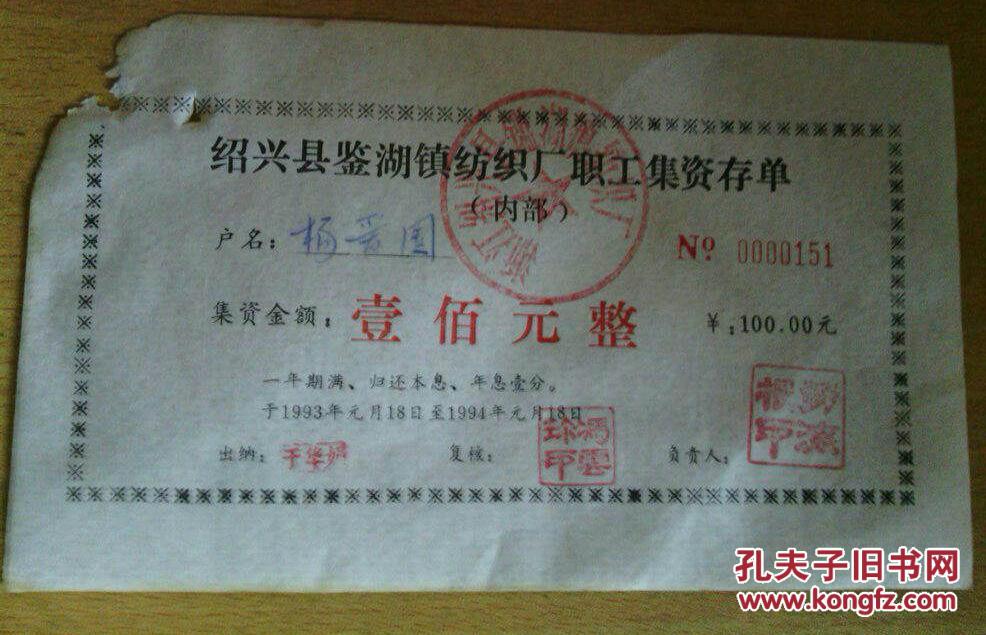 绍兴县鉴湖镇纺织厂职工集资存单
（内部）
户名：杨晋国
№ 0000151
集资金额：壹佰元整 ￥：100.00元
一年期满、归还本息、年息壹分。
于1993年元月18日至1994年元月18日
出纳： 复核： 负责人：
孔夫子旧书网
www.kongfz.com